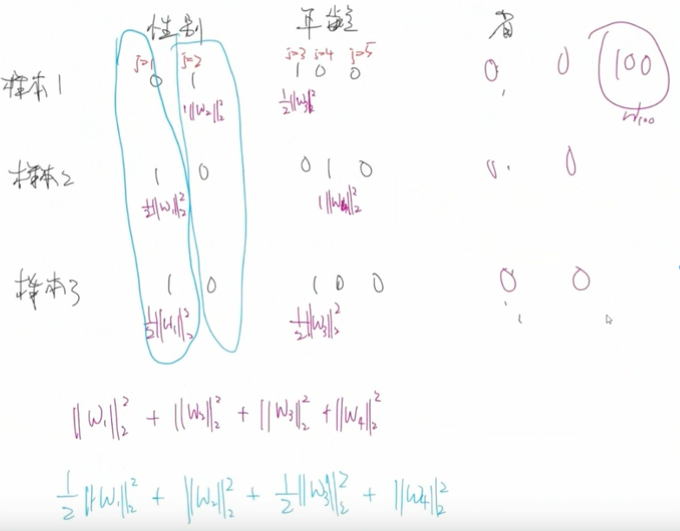 性别 年龄 省
j=1 j=2 j=3 j=4 j=5
样本1 0 1 1 0 0 0 0 100
1||W₂||₂² ½||W₃||₂² W₁₀₀
样本2 1 0 0 1 0 0 0
½||W₁||₂² 1||W₄||₂²
样本3 1 0 1 0 0 0 0
½||W₁||₂² ½||W₃||₂²
||W₁||₂² + ||W₂||₂² + ||W₃||₂² + ||W₄||₂²
½||W₁||₂² + ||W₂||₂² + ½||W₃||₂² + ||W₄||₂²